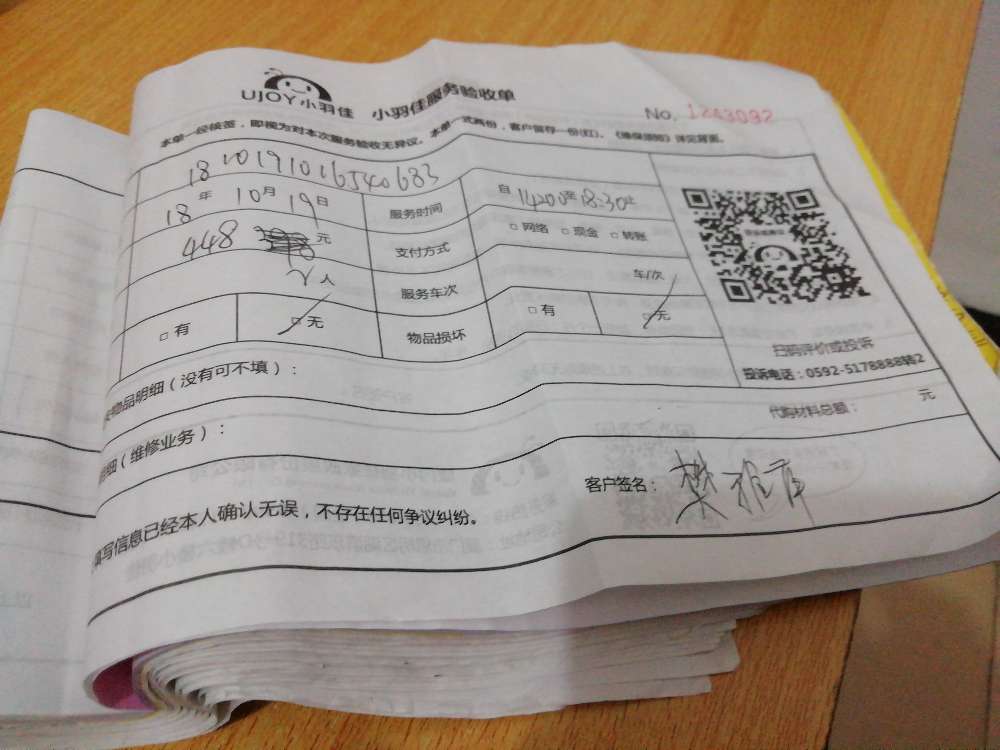 UJOY小羽佳 小羽佳服务验收单
No. 1243092
本单一经核签，即视为对本次服务验收无异议。本单一式两份，客户留存一份(红)。《维保须知》详见背面。
181019101654 0683
18年10月19日 服务时间 自14:00至18:30止
448元 支付方式 □网络 □现金 □转账
2人 服务车次 车/次
□有 □无 物品损坏 □有 □无
扫码评价或投诉
投诉电话：0592-5178888转2
物品明细（没有可不填）：
明细（维修业务）： 代购材料总额： 元
填写信息已经本人确认无误，不存在任何争议纠纷。 客户签名：樊